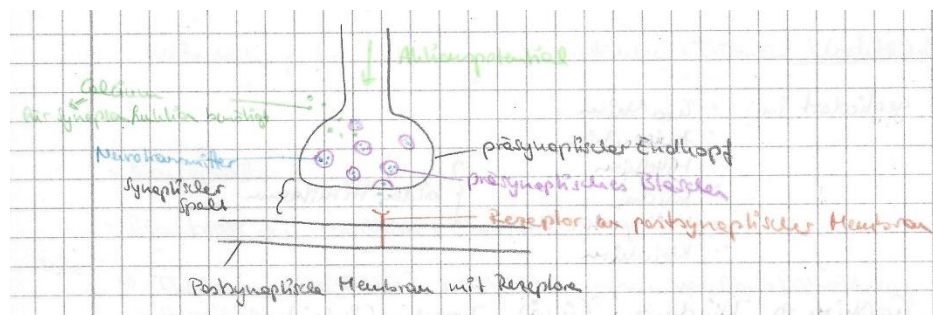 Aktionspotential
Calcium
für Synapsenfunktion benötigt
Neurotransmitter
präsynaptischer Endknopf
präsynaptisches Bläschen
Synaptischer
Spalt
Rezeptor an postsynaptischer Membran
Postsynaptische Membran mit Rezeptoren